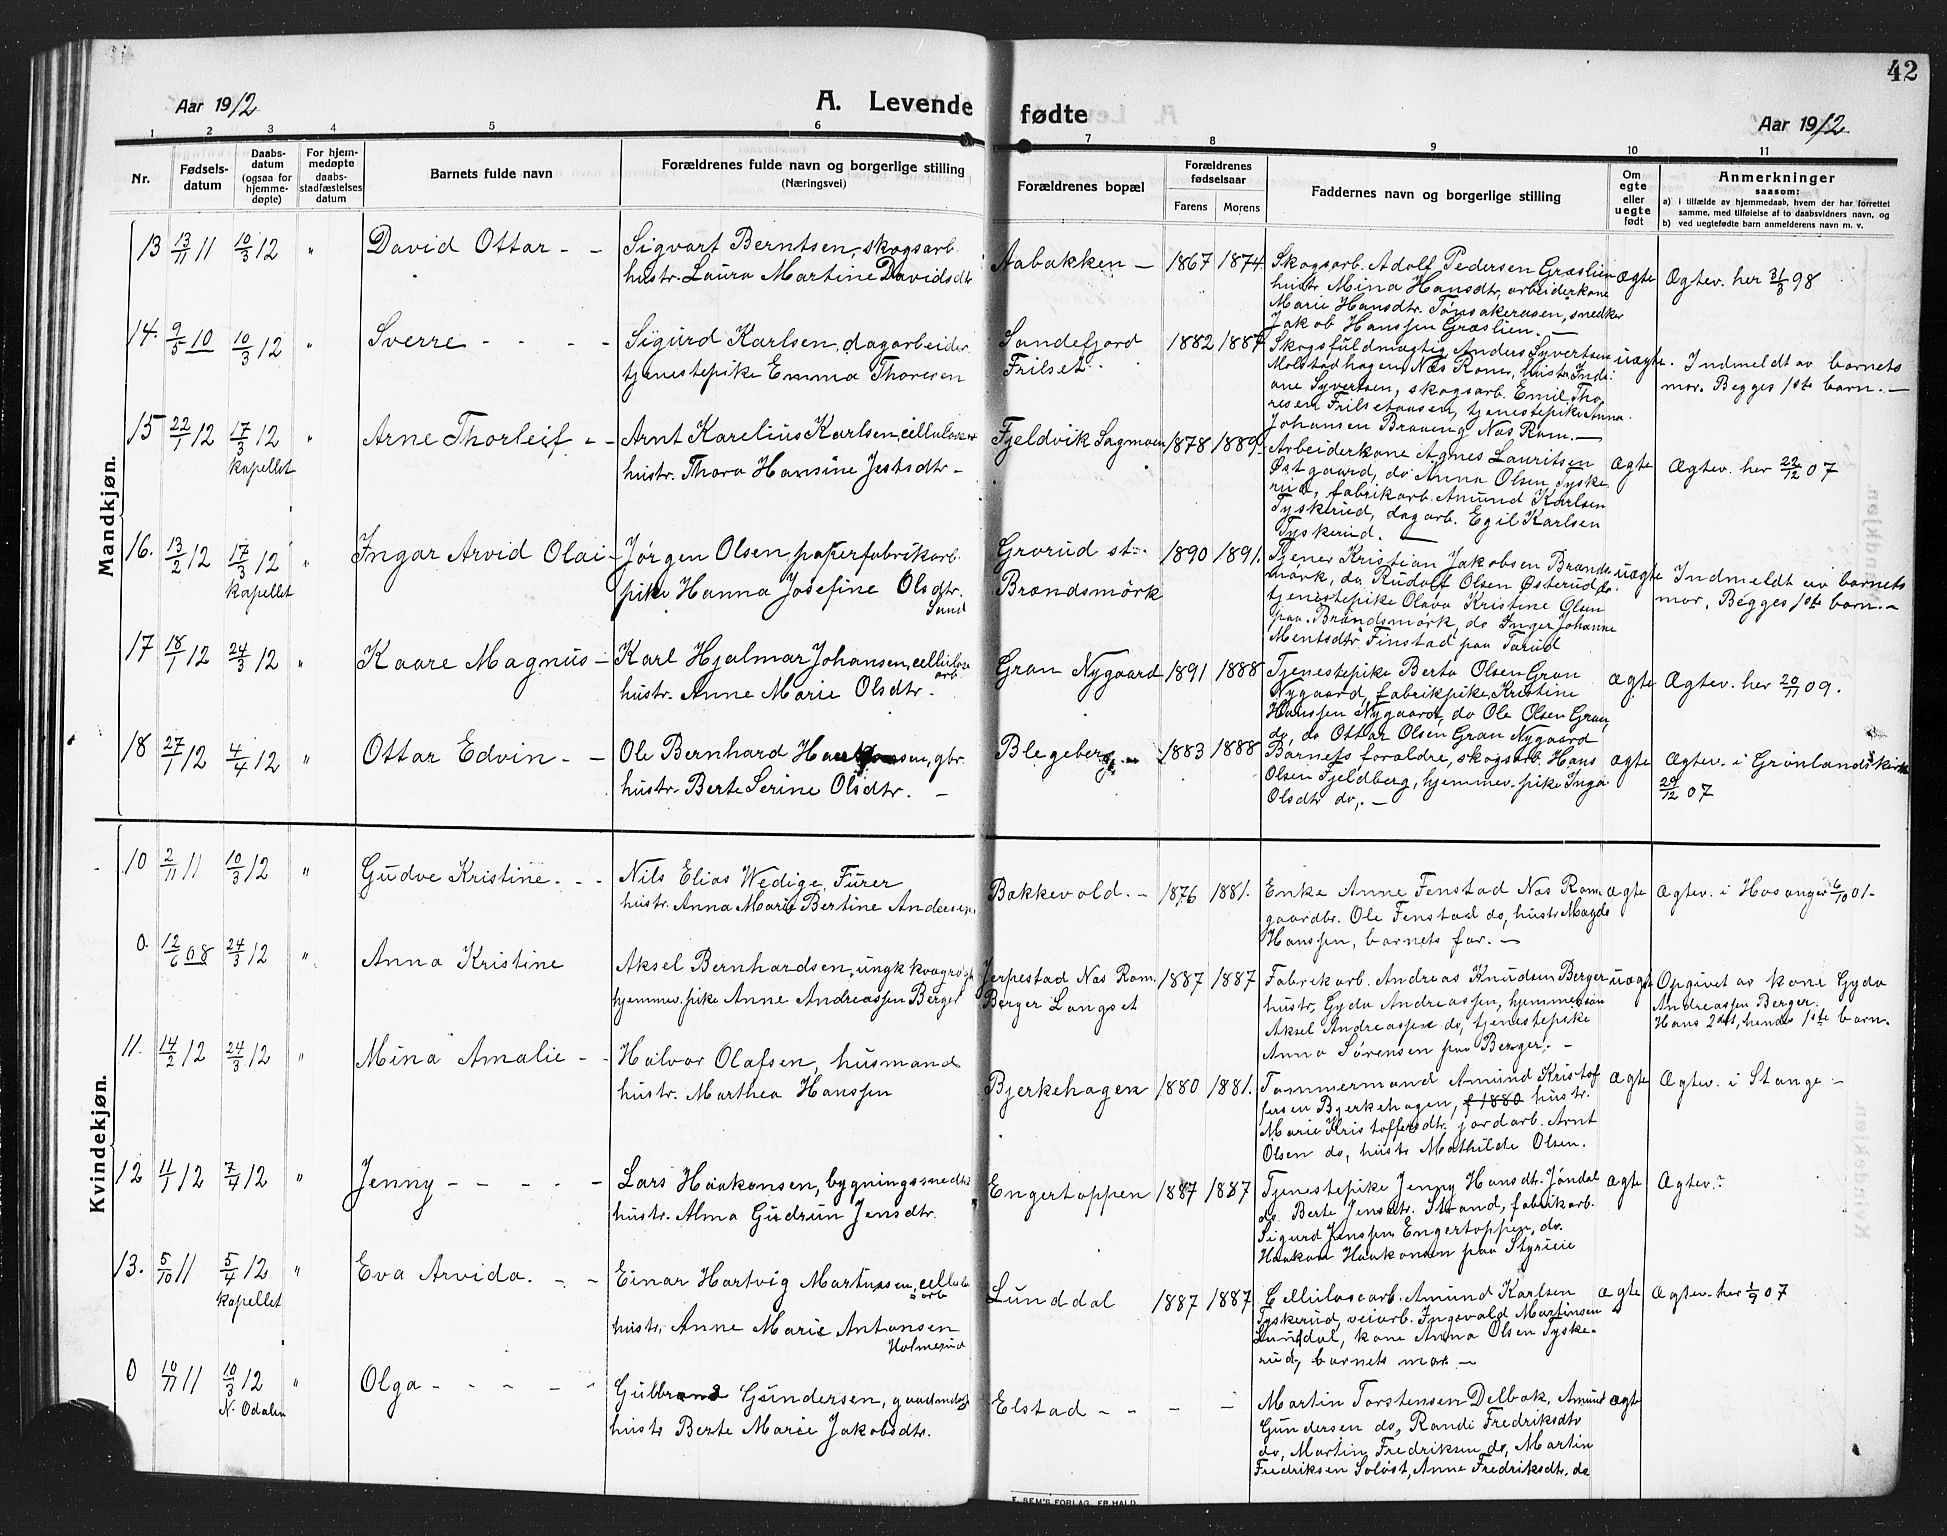 42
Aar 1912
A. Levende fødte
Aar 1912
1 2 3 4 5 6 7 8 9 10 11
Nr.
Fødsels-
datum
Daabs-
datum
(ogsaa for
hjemme-
døpte)
For hjem-
medøpte
daabs-
stadfæstelses
datum
Barnets fulde navn
Forældrenes fulde navn og borgerlige stilling
(Næringsvei)
Forældrenes bopæl
Forældrenes
fødselsaar
Farens Morens
Faddernes navn og borgerlige stilling
Om
egte
eller
uegte
født
Anmerkninger
saasom:
a) i tilfælde av hjemmedaab, hvem der har forrettet
samme, med tilføielse af to daabsvidners navn, og
b) ved uegtefødte barn anmelderens navn m. v.
Mandkjøn.
13 13/11 11 10/3 12 " David Ottar - -
Sigvart Berntsen, skogsarb.
hustr. Laura Martine Davidsdtr
Aabakken - 1867 1874
Skogsarb. Adolf Pedersen Græslien
hustr Mina Hansdtr, arbeiderkone
Marie Hansdtr. Tønsakerasen, snedker
Jakob Hanssen Græslien. -
ægte Ægtev. her 31/3 98
14. 9/5 10 10/3 12 " Sverre - - - -
Sigurd Karlsen, dagarbeider
tjenestepike Emma Thoresen
Sandefjord
Frilset
1882 1887
Skogsfuldmægtig Anders Syvertsen
Molstadhagen Næs Rom., hustr. Indi-
ane Syvertsen, skogsarb. Emil Tho-
resen Frilsetaasen, tjenestepike Anna
Johansen Braaeng Næs Rom. -
uægte. Indmeldt av barnets
mor. Begges 1ste barn. -
15 22/1 12 17/3 12 " Arne Thorleif - -
kapellet
Arnt Karelius Karlsen, cellulosear
hustr. Thora Hansine Jestsdtr -
Fjeldvik Sagmoen 1878 1889
Arbeiderkone Agnes Lauritsen
Østgaard, do Anna Olsen Tyske-
rud, fabrikarb. Amund Karlsen
Tyskerud, dagarb. Egil Karlsen
Tyskerud. -
ægte Ægtev. her 22/12 07
16. 13/2 12 17/3 12 " Ingar Arvid Olai
kapellet
Jørgen Olsen, papirfabrikarb.
pike Hanna Josefine Olsdtr.
Sund
Grorud st.
Brændsmørk
1890 1891.
Tjener Kristian Jakobsen Brænds-
mørk, do Rudolf Olsen Østerud do.
tjenestepike Olava Kristine Olsen
paa Brændsmørk, do Inger Johanne
Mentsdtr Finstad paa Tarud
uægte Indmeldt av barnets
mor, Begges 1ste barn. -
17 18/1 12 24/3 12 " Kaare Magnus -
Karl Hjalmar Johansen, cellulose
arb.
hustr. Anne Marie Olsdtr.
Gran Nygaard 1891 1888
Tjenestepike Berta Olsen Gran
Nygaard, fabrikpike Kristine
Hanssen Nygaard, do Ole Olsen Gran,
do, do Ottar Olsen Gran Nygaard
ægte Ægtev. her 20/11 09.
18 27/1 12 4/4 12 " Ottar Edvin - -
Ole Bernhard Haakonsen, gbr.
hustr. Berte Serine Olsdtr. -
Blegeberg 1883 1888
Barnets foraldre, skogsarb. Hans
Olsen Fjeldberg, hjemmev. pike Inga
Olsdtr do, -
ægte Ægtev. i Grønlands kirke
29/12 07
Kvindekjøn.
10 2/11 11 10/3 12 " Gudve Kristine. - -
Nils Elias Wedige Fürer
hustr. Anna Marie Bertine Andersen
Bakkevold. - 1876 1881.
Enke Anne Fenstad Næs Rom.
gaardbr. Ole Fenstad do, hustr Magda
Hanssen, barnets far. -
ægte Ægtev. i Hosanger 6/10 01-
0. 12/6 08 24/3 12 " Anna Kristine
Aksel Bernhardsen, ungk kvægrøgt
hjemmev. pike Anne Andreassen Berger
Jerpestad Næs Rom.
Berger Langset
1887 1887
Fabrikarb. Andreas Knudsen Berger
hustr, Gyda Andreassen, hjemmesøn
Aksel Andreassen do, tjenestepike
Anna Sørensen paa Berger. -
uægte Opgivet av kone Gyda
Andreassen Berger.
Hans 2det, hendes 1ste barn.
11. 14/2 12 24/3 12 " Mina Amalie - -
Halvor Olafsen, husmand
hustr. Marthea Hanssen
Bjerkehagen 1880 1881.
Tømmermand Amund Kristof
fersen Bjerkehagen, f 1880 hustr.
Marie Kristoffersdtr. jordarb. Arnt
Olsen do, hustr Mathilde Olsen.
ægte Ægtev. i Stange -
12 4/1 12 7/4 12 " Jenny - - - - -
Lars Haakonsen, bygningssnedker
hustr. Alma Gudrun Jensdtr.
Engertoppen 1887 1887
Tjenestepike Jenny Hansdtr. Jøndal
do Berte Jensdtr. Strand, fabrikarb.
Sigurd Jenssen Engertoppen, do.
Haakon Haakonsen paa Styricie
ægte Ægtev.?
13. 5/10 11 5/4 12 " Eva Arvida. - -
kapellet
Einar Hartvig Martinsen, cellulose
arb
hustr. Anne Marie Antonsen
Holmerud
Lunddal 1887 1887
Cellulosearb. Amund Karlsen
Tyskerud, veiarb. Ingevald Martinsen
Lunddal, kone Anna Olsen Tyske-
rud, barnets mor. -
ægte Ægtev. her 1/9 07
0 10/11 11 10/3 12 " Olga - - - - -
N. Odalen
Gulbrand Gundersen, gaardmand
hustr Berte Marie Jakobsdtr.
Elstad - - - -
Martin Torstensen Delbak, Amund
Gundersen do, Randi Fredriksdtr
do, Martin Fredriksen do, Martin
Fredriksen Soløst, Anne Fredriksdtr, do
ægte
E. SEM'S FORLAG, FR.HALD